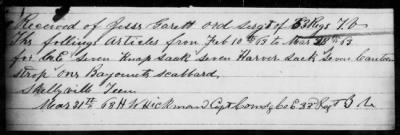 Received of Jess Garett ord Sergt of 53 Regs T.V
The follings Articles from Feb 10th 63 to Mar 28th 63
for Cate Seven Knap Saak Seven Haver Sack Seven Canteen
Strap One Bayonett scabbard,
Shellyville Tenn
Mar 31th 63 H W Hickman Cpt Comdg Co E 53rd Regt